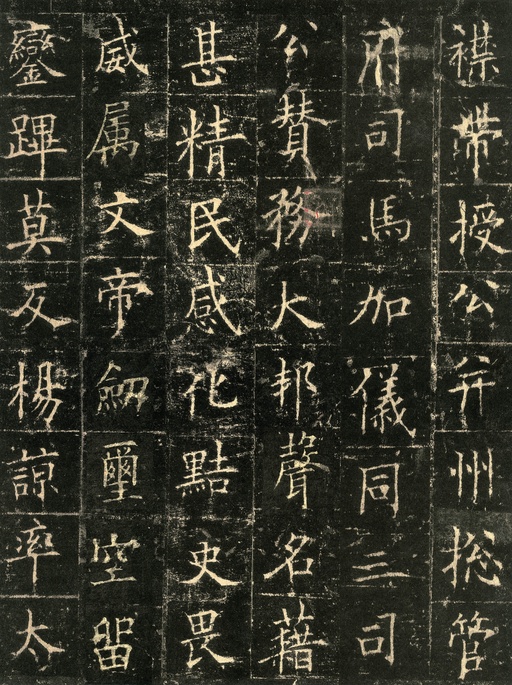 襟帶授公并州総管
府司馬加儀同三司
公賛務大邦聲名藉
甚精民感化黠史畏
威属文帝劒璽空留
鑾蹕莫反楊諒率太